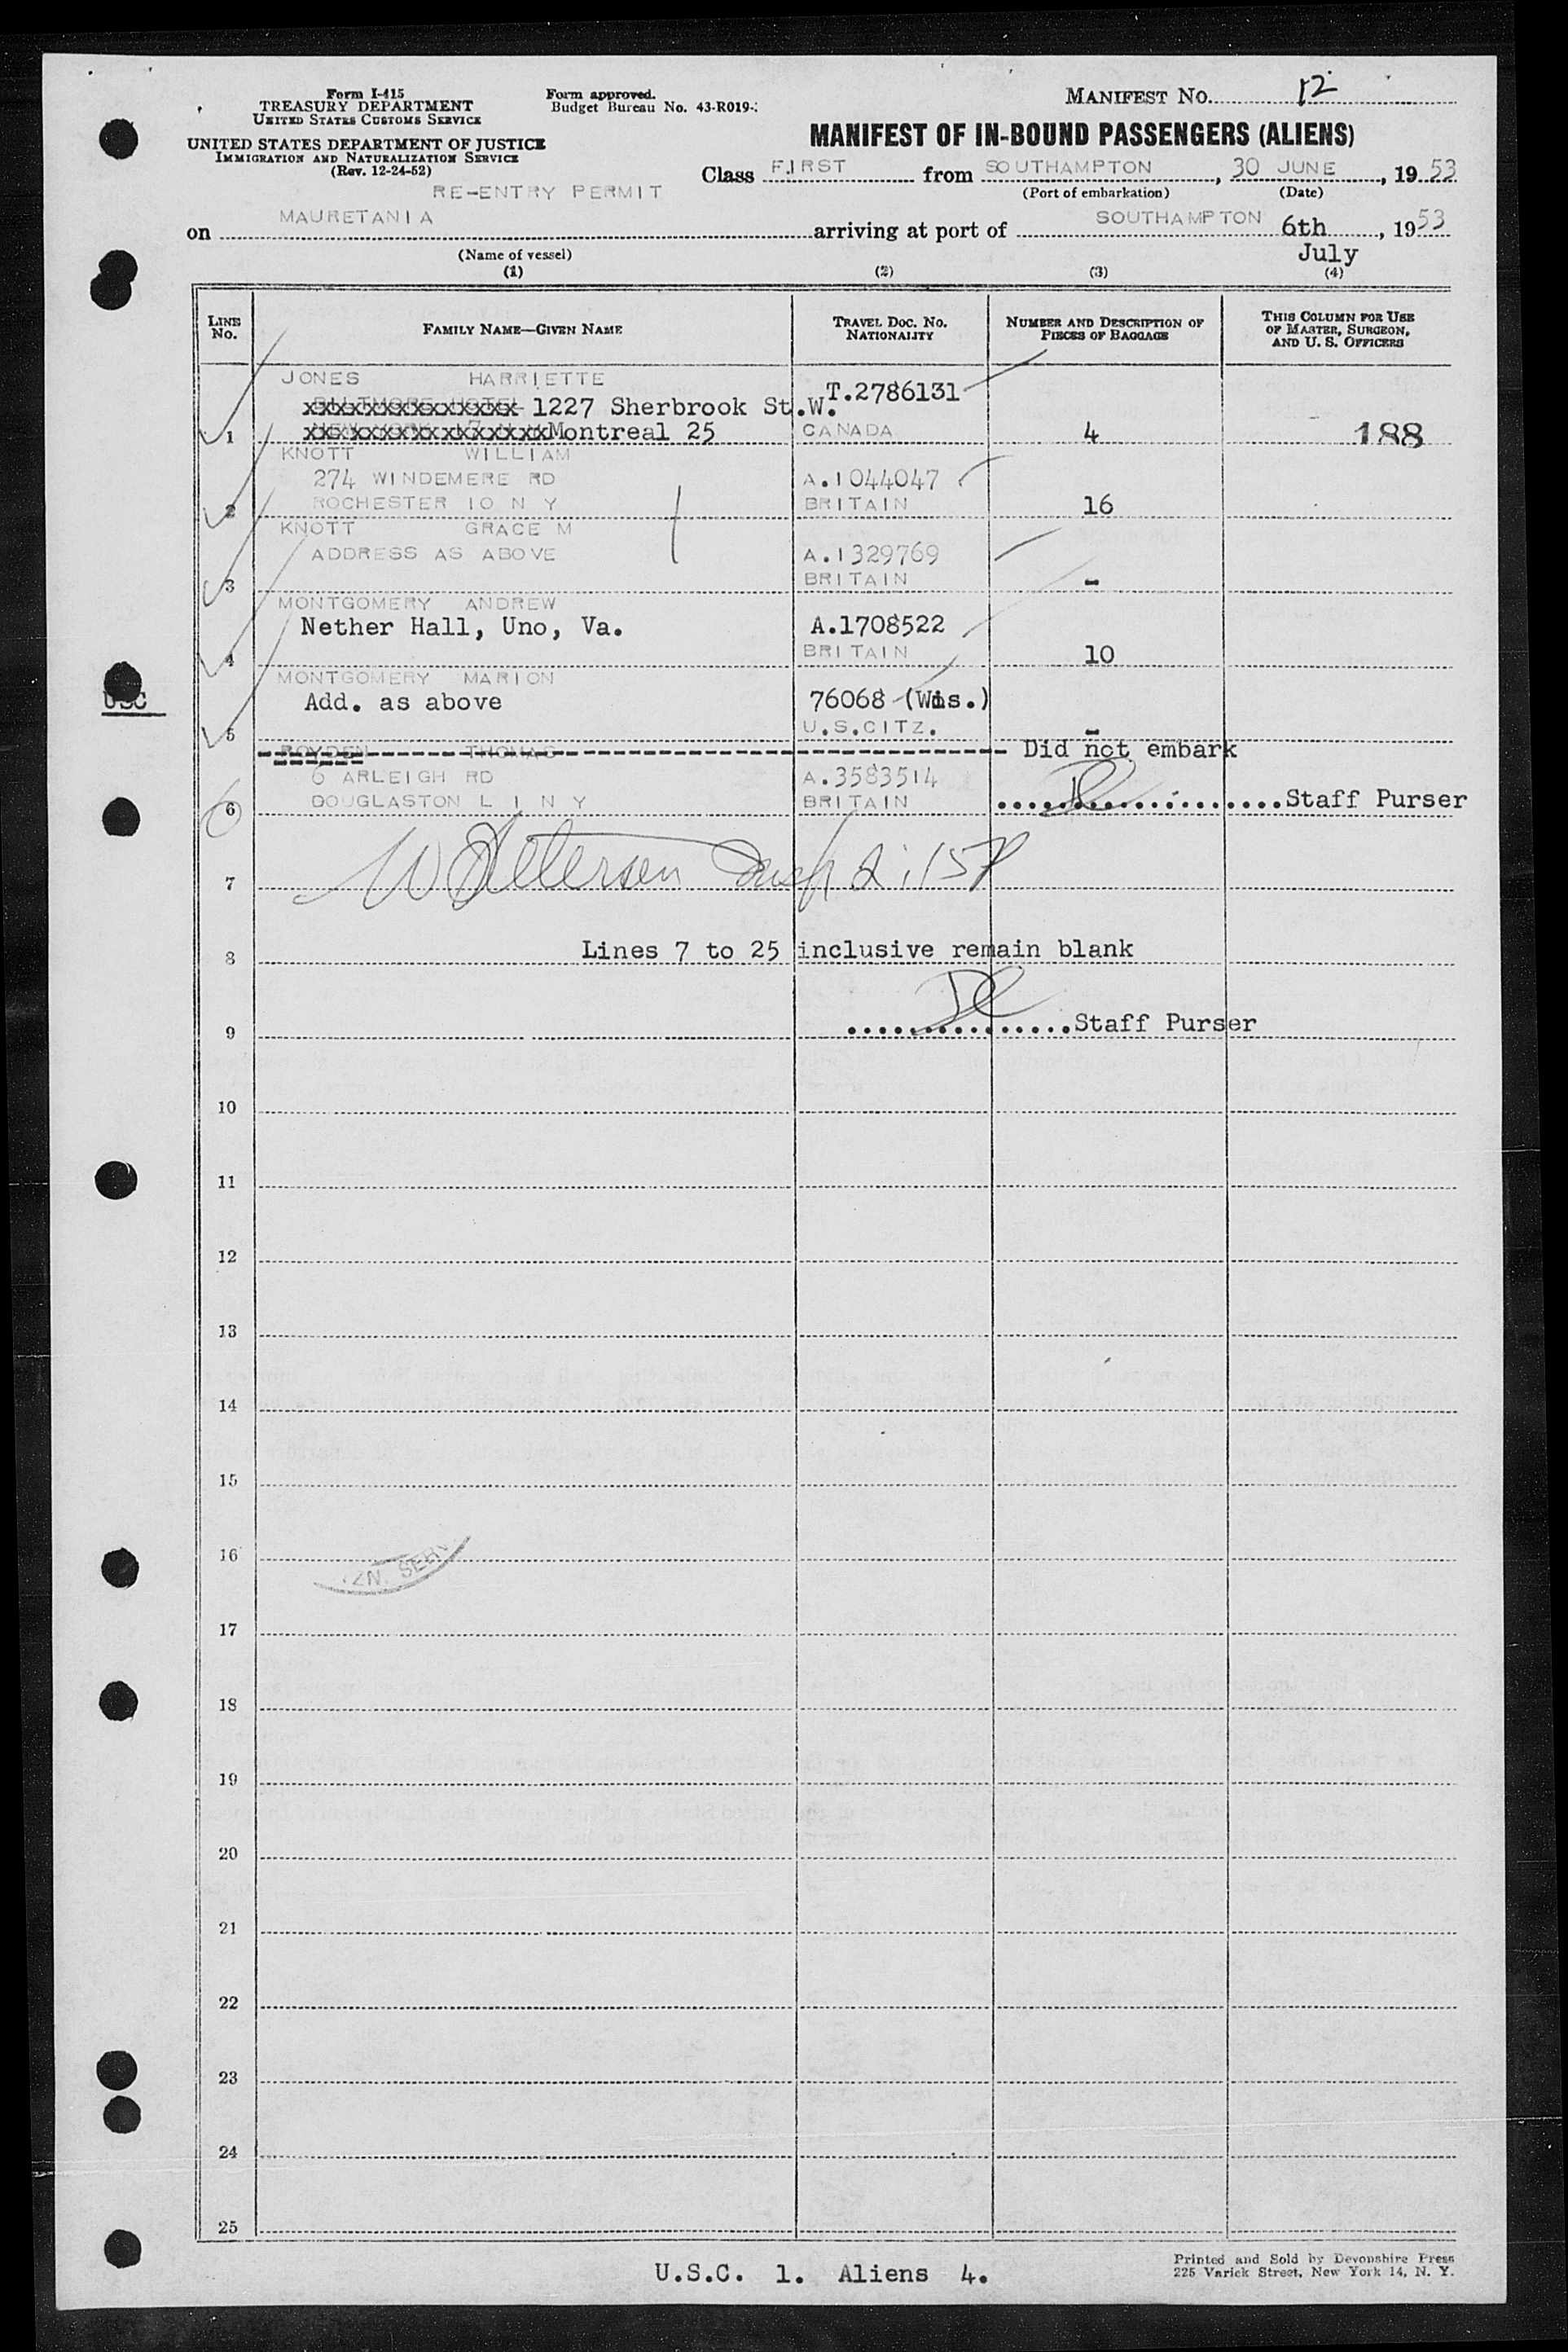 Form I-415
TREASURY DEPARTMENT
UNITED STATES CUSTOMS SERVICE
UNITED STATES DEPARTMENT OF JUSTICE
IMMIGRATION AND NATURALIZATION SERVICE
(Rev. 12-24-52)
Form approved.
Budget Bureau No. 43-R019-
MANIFEST No. 12
MANIFEST OF IN-BOUND PASSENGERS (ALIENS)
Class FIRST from SOUTHAMPTON, 30 JUNE, 1953
(Port of embarkation) (Date)
RE-ENTRY PERMIT
on MAURETANIA arriving at port of SOUTHAMPTON 6th, 1953
July
(Name of vessel)
(1) (2) (3) (4)
LINE No. FAMILY NAME—GIVEN NAME TRAVEL DOC. NO. NATIONALITY NUMBER AND DESCRIPTION OF PIECES OF BAGGAGE THIS COLUMN FOR USE OF MASTER, SURGEON, AND U. S. OFFICERS
JONES HARRIETTE
BILTMORE HOTEL 1227 Sherbrook St.W. T.2786131
1 Montreal 25 CANADA 4 188
KNOTT WILLIAM
274 WINDEMERE RD A.1044047
2 ROCHESTER 10 N Y BRITAIN 16
KNOTT GRACE M
ADDRESS AS ABOVE A.1329769
3 BRITAIN -
MONTGOMERY ANDREW
Nether Hall, Uno, Va. A.1708522
4 BRITAIN 10
MONTGOMERY MARION
USC Add. as above 76068 (Wis.)
5 U.S.CITZ. -
ROYDEN THOMAS Did not embark
6 ARLEIGH RD A.3583514
6 DOUGLASTON L I N Y BRITAIN Staff Purser
7
8 Lines 7 to 25 inclusive remain blank
9 Staff Purser
10
11
12
13
14
15
16
ZN. SERV
17
18
19
20
21
22
23
24
25
U.S.C. 1. Aliens 4.
Printed and Sold by Devonshire Press
225 Varick Street, New York 14, N. Y.